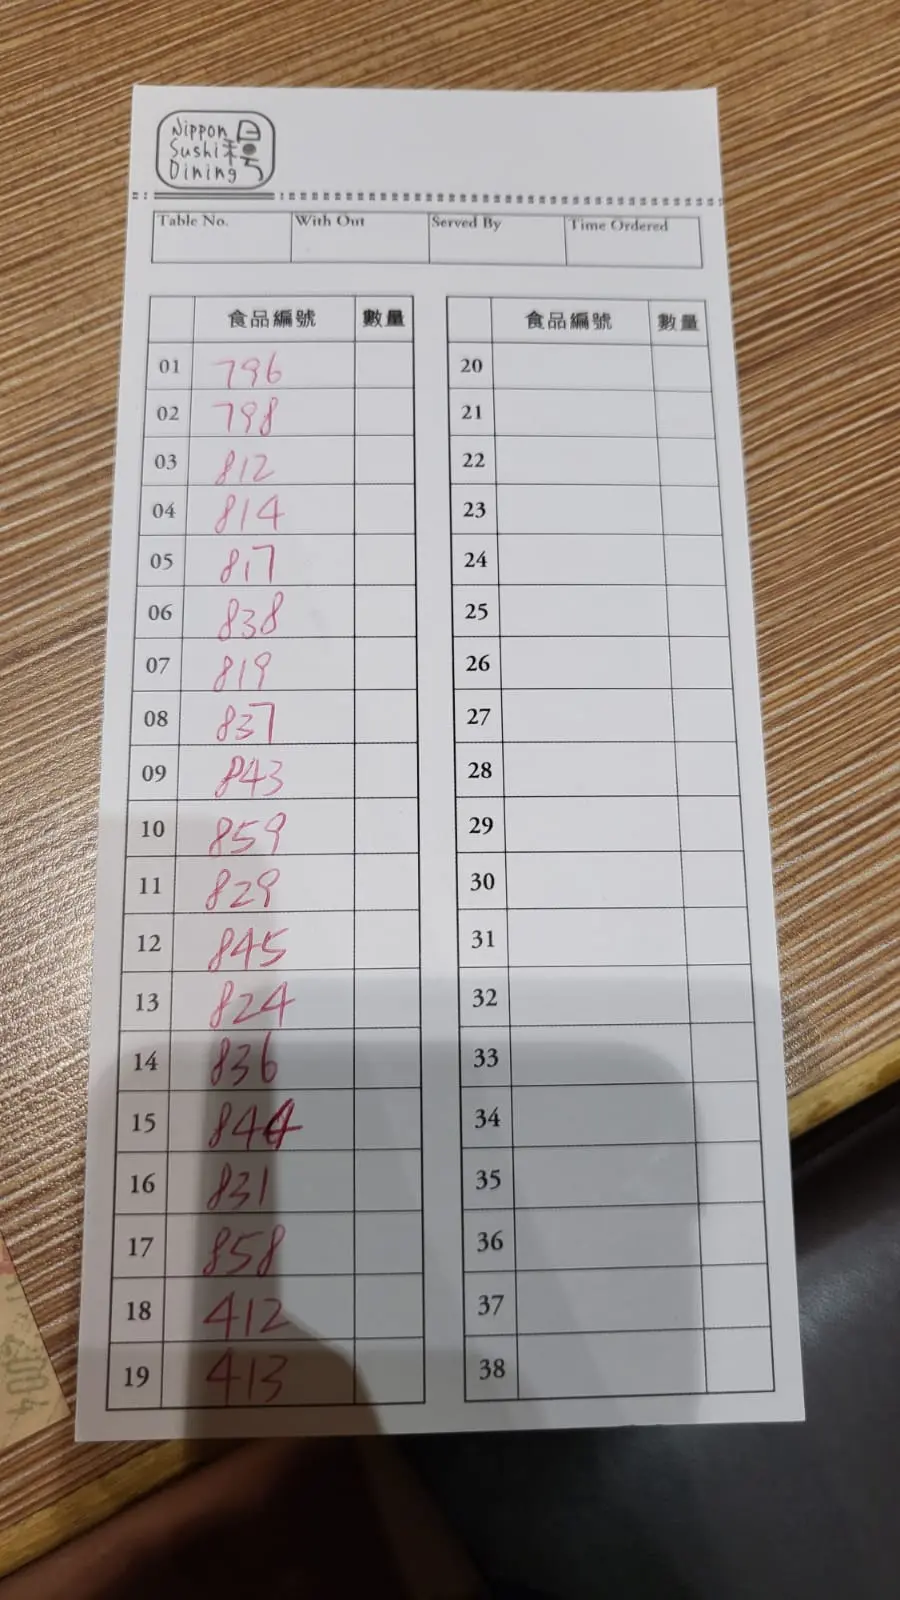 Nippon
Sushi
Dining
Table No. With Out Served By Time Ordered
食品編號 數量 食品編號 數量
01 796 20
02 798 21
03 812 22
04 814 23
05 817 24
06 838 25
07 819 26
08 837 27
09 843 28
10 859 29
11 829 30
12 845 31
13 824 32
14 836 33
15 844 34
16 831 35
17 858 36
18 412 37
19 413 38